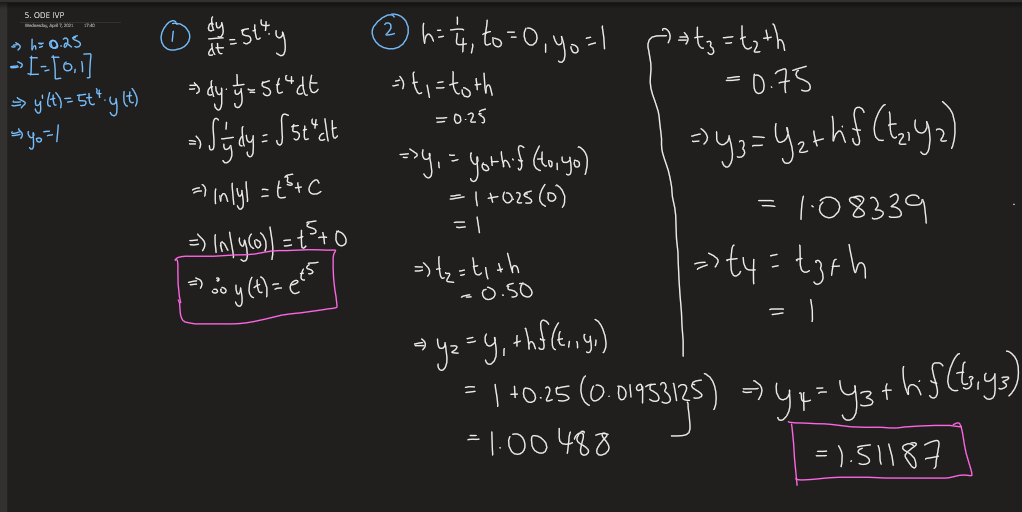 5. ODE IVP
Wednesday, April 7, 2021 17:40
⇒ h=0.25
⇒ I=[0,1]
⇒ y'(t)=5t⁴·y(t)
⇒ y₀=1
①
dy/dt=5t⁴·y
⇒ dy·1/y=5t⁴dt
⇒ ∫1/y dy=∫5t⁴dt
⇒ ln|y|=t⁵+C
⇒ ln|y(0)|=t⁵+0
⇒ ∴ y(t)=e^t⁵
②
h=1/4, t₀=0, y₀=1
⇒ t₁=t₀+h
=0.25
⇒ y₁=y₀+h·f(t₀,y₀)
=1+0.25(0)
=1
⇒ t₂=t₁+h
=0.50
⇒ y₂=y₁+hf(t₁,y₁)
=1+0.25(0.01953125)
=1.00488
⇒ t₃=t₂+h
=0.75
⇒ y₃=y₂+hf(t₂,y₂)
=1.08339
⇒ t₄=t₃+h
=1
⇒ y₄=y₃+hf(t₃,y₃)
=1.51187